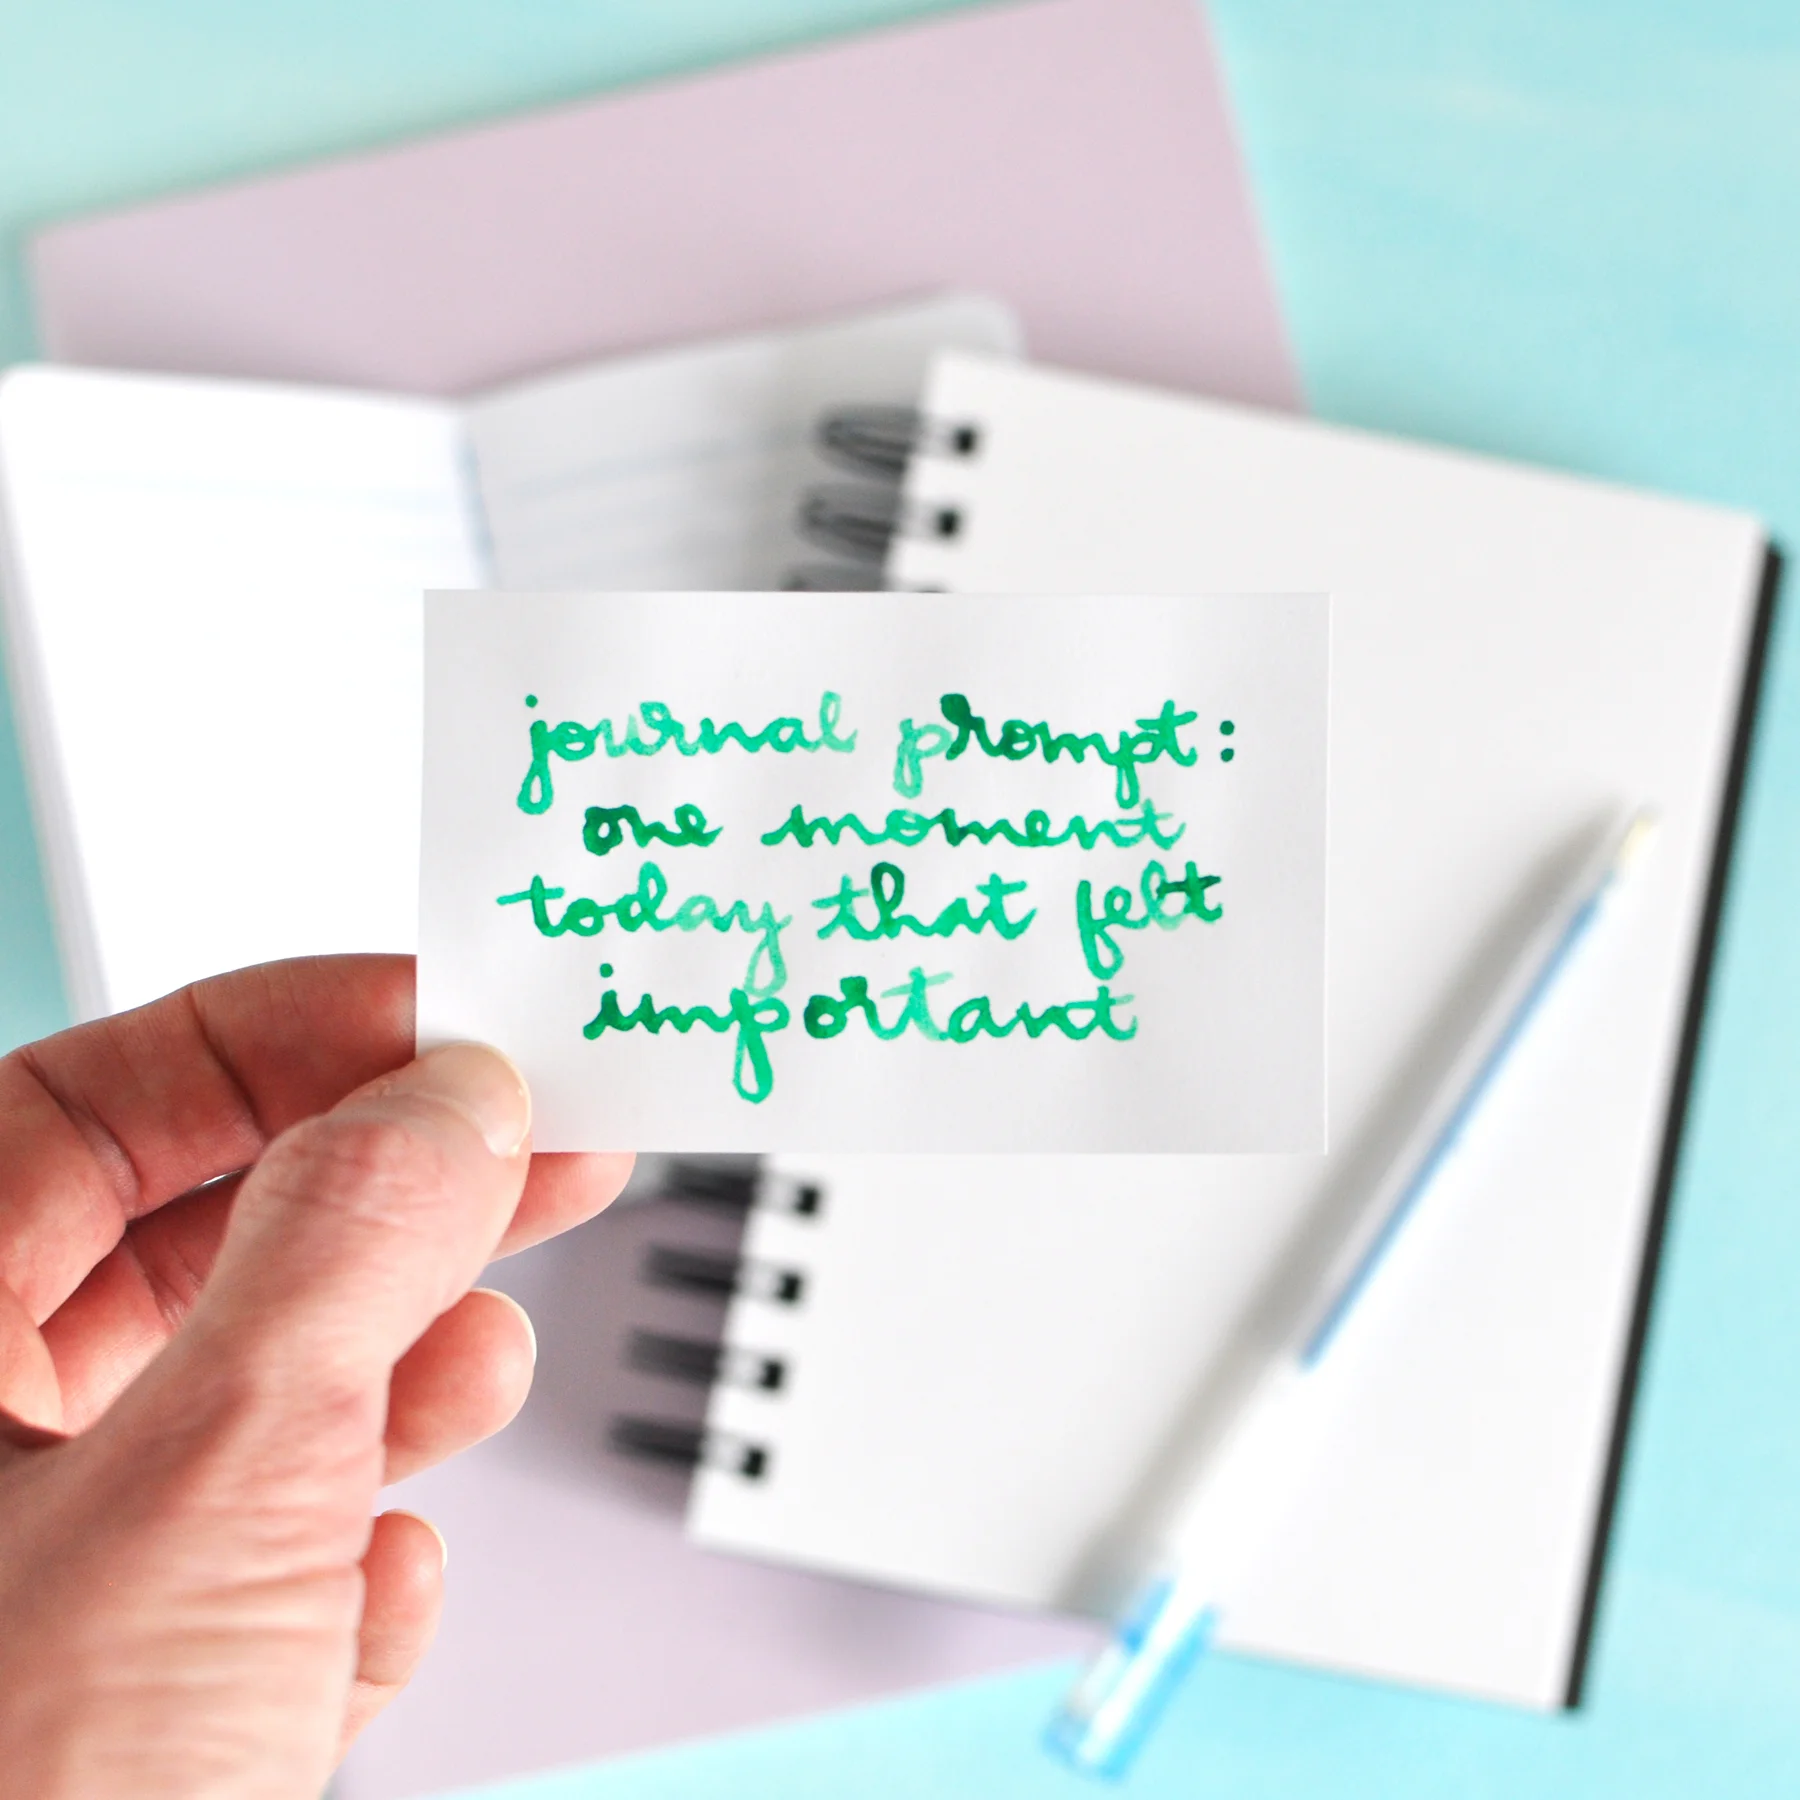 journal prompt:
one moment
today that felt
important